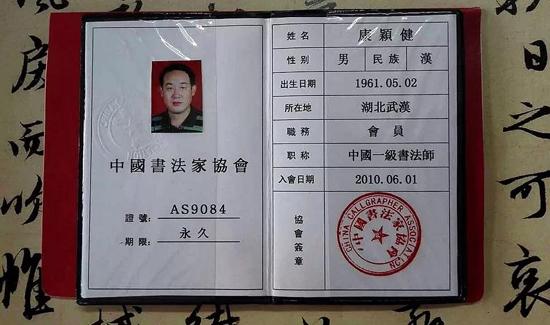 中國書法家協會
證號: AS9084
期限: 永久
姓名 康穎健
性别 男 民族 漢
出生日期 1961.05.02
所在地 湖北武漢
職務 會員
职称 中國一級書法師
入會日期 2010.06.01
協會簽章
中國書法家協會
日之可哀